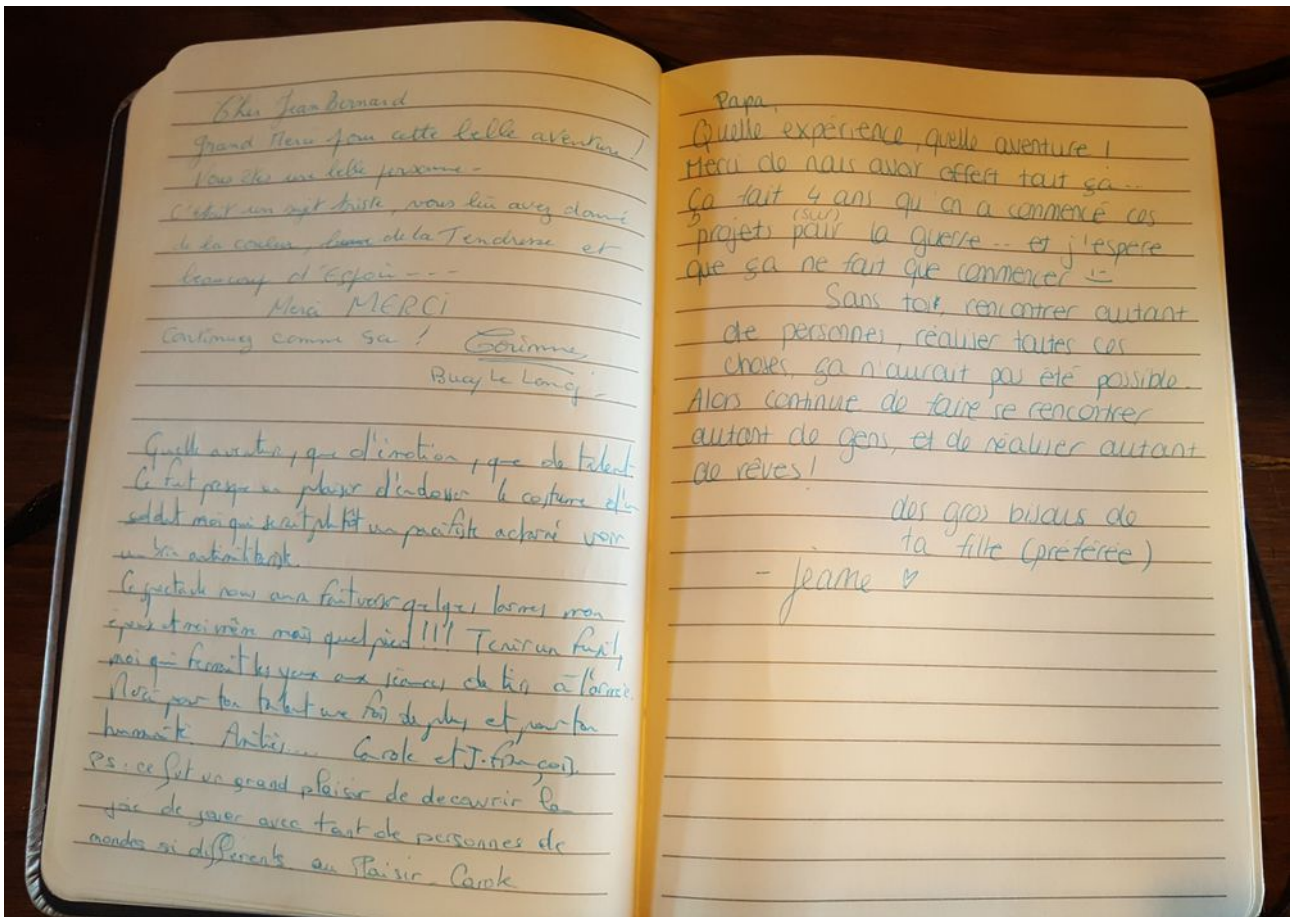 Cher Jean Bernard
Grand Merci pour cette belle aventure !
Vous êtes une belle personne -
C'était un sujet triste, vous lui avez donné
de la couleur, de la Tendresse et
beaucoup d'Espoir - - -
Merci MERCI
Continuez comme sa ! Corinne,
Bucy Le Long -
Quelle aventure, que d'émotion, que de talent
Ce fut presque un plaisir d'endosser le costume d'un
soldat moi qui serait plutôt un pacifiste acharné voir
un brin antimilitariste.
Ce spectacle nous aura fait verser quelques larmes mon
épouse et moi même mais quel pied !!! Tenir un fusil,
moi qui fermait les yeux aux séances de tir à l'armée.
Merci pour ton talent une fois de plus et pour ton
humanité. Amitiés.... Carole et J. françois.
Ps. ce fut un grand plaisir de decouvrir la
joie de jouer avec tant de personnes de
mondes si différents au Plaisir - Carole
Papa,
Quelle expérience, quelle aventure !
Merci de nous avoir offert tout ça..
Ça fait 4 ans qu'on a commencé ces
projets pour (sur) la guerre .. et j'espère
que ça ne fait que commencer :)
Sans toi, rencontrer autant
de personnes, réaliser toutes ces
choses, ça n'aurait pas été possible.
Alors continue de faire se rencontrer
autant de gens, et de réaliser autant
de rêves !
des gros bisous de
ta fille (préférée)
- jeanne ♡